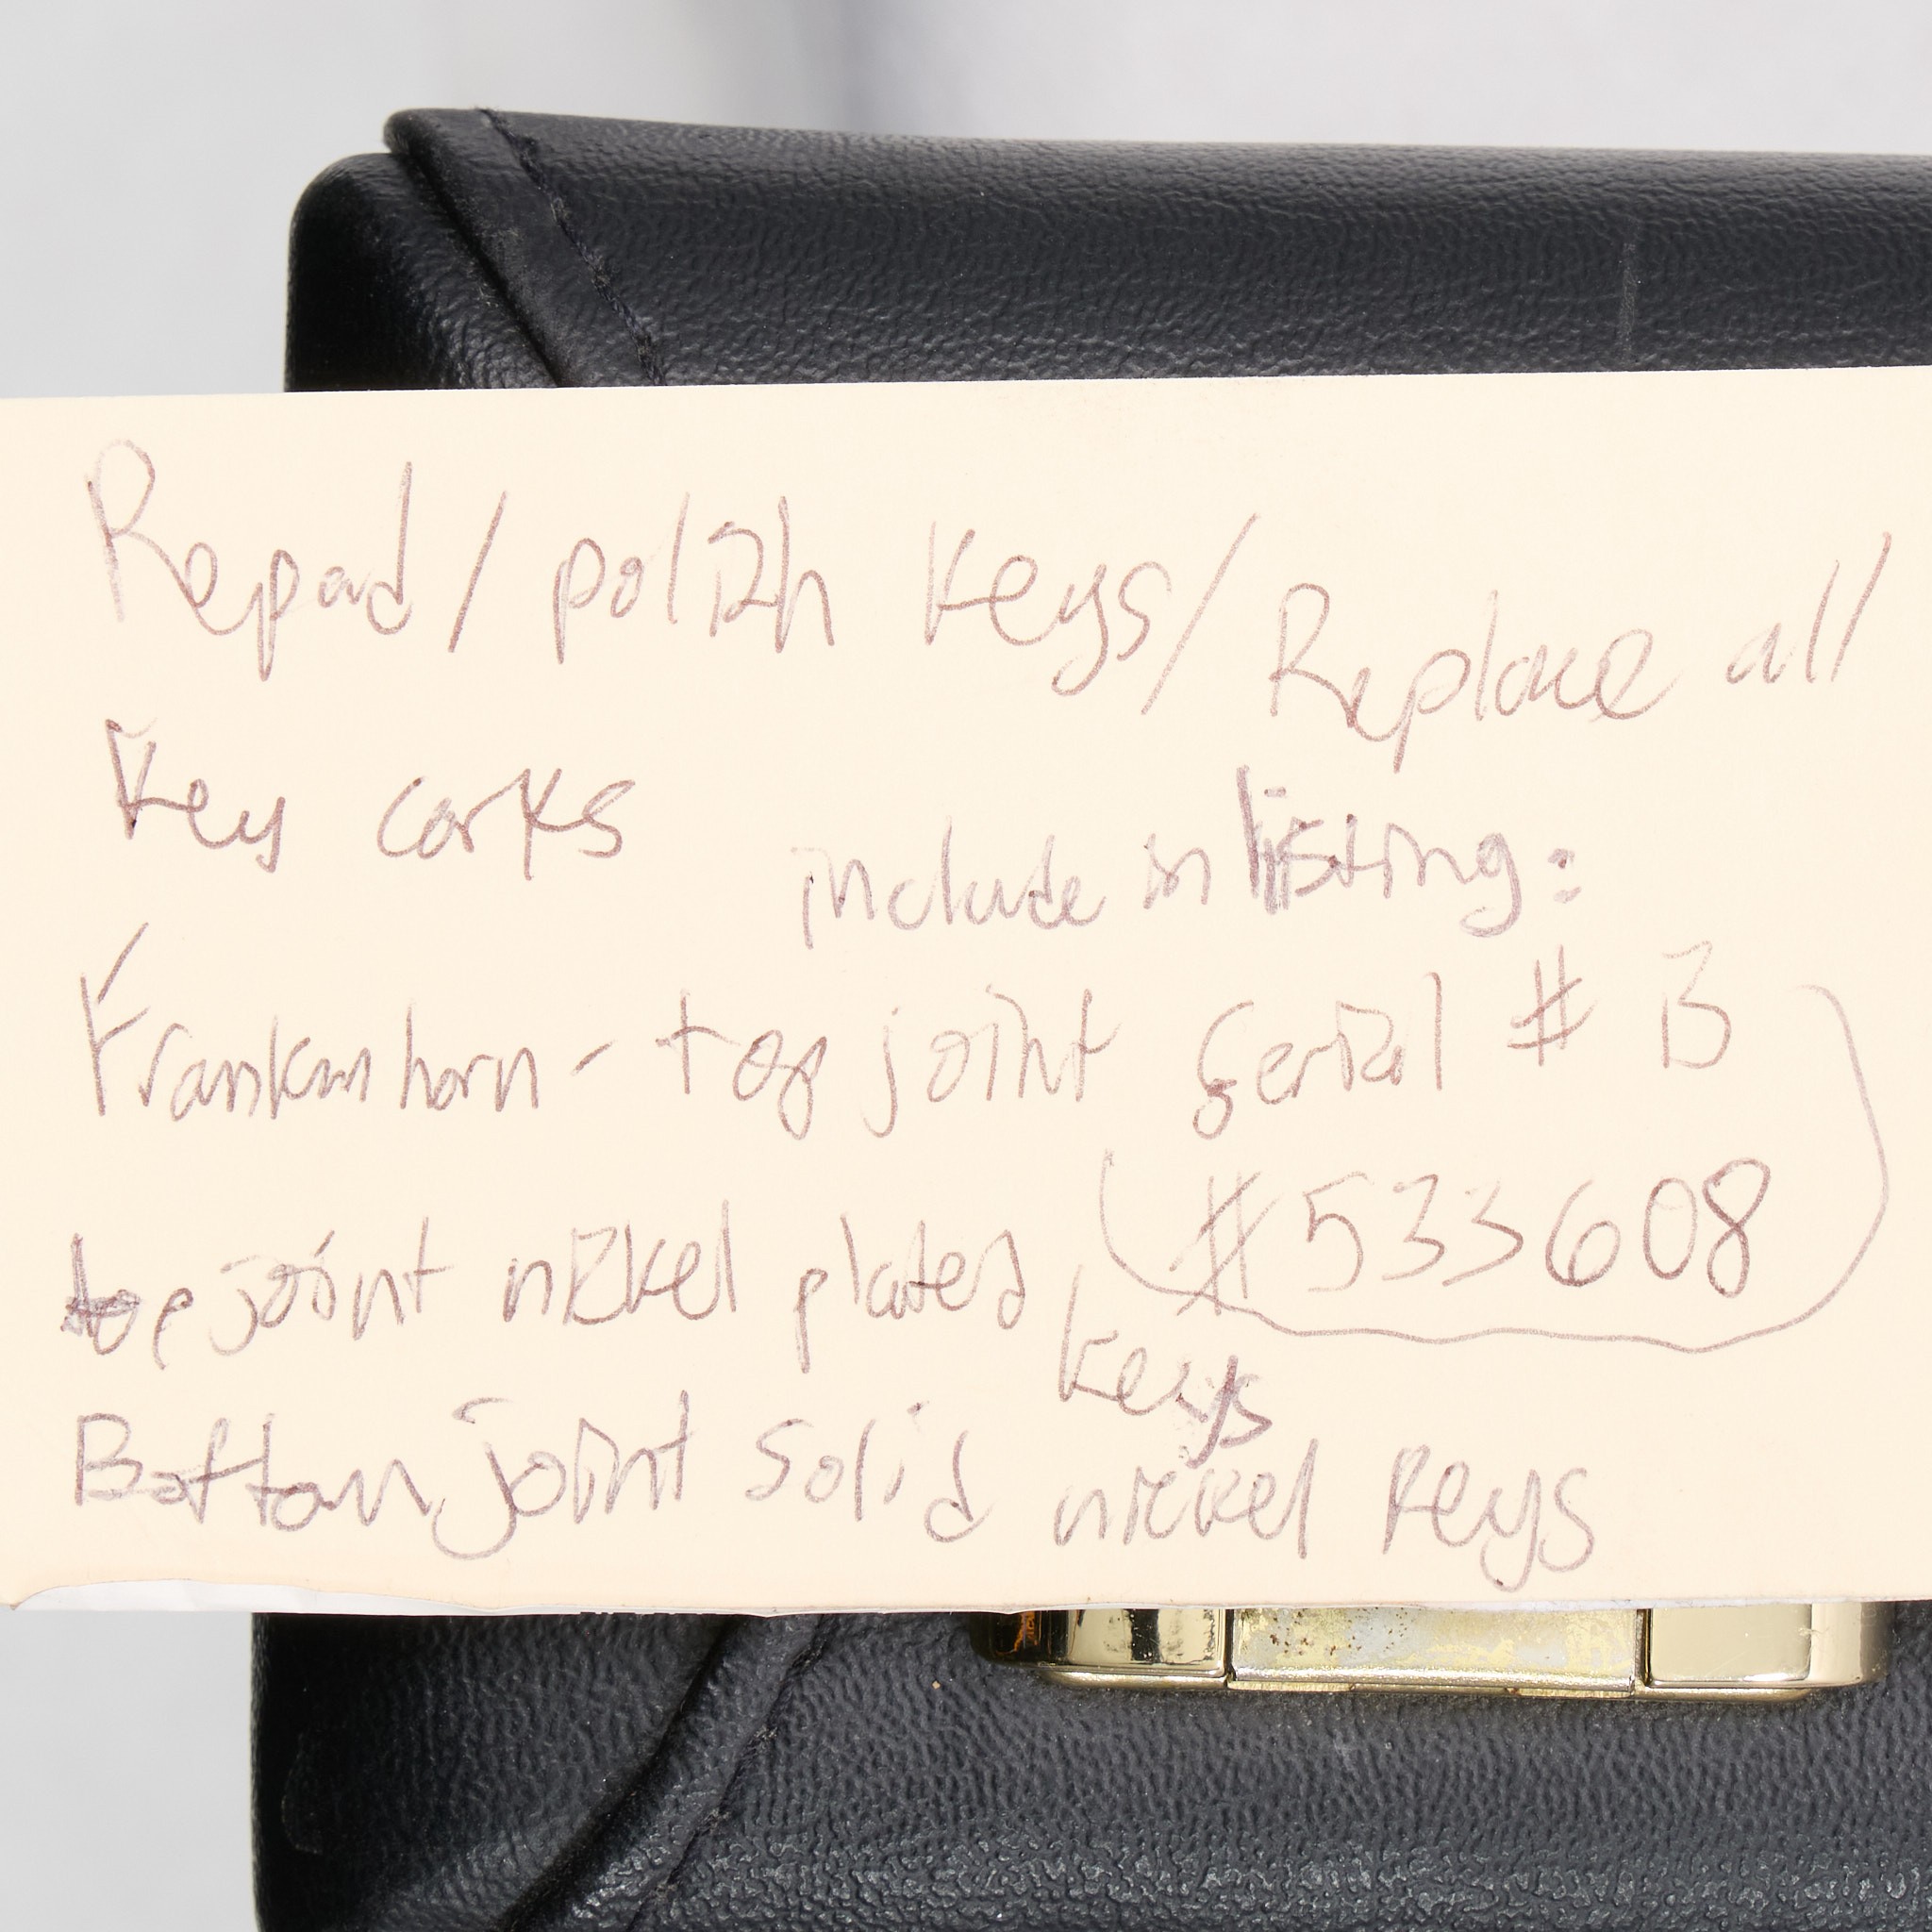 Repad / polish keys / Replace all
key corks
include in listing:
Frankenhorn - top joint serial # B
#533608
top joint nickel plated keys
Bottom joint solid nickel keys